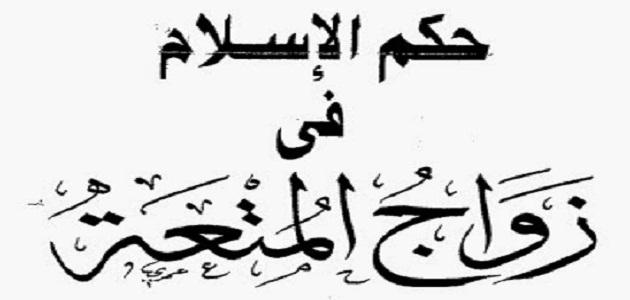 حكم الإسلام
فى
زَوَاجُ المُتْعَة